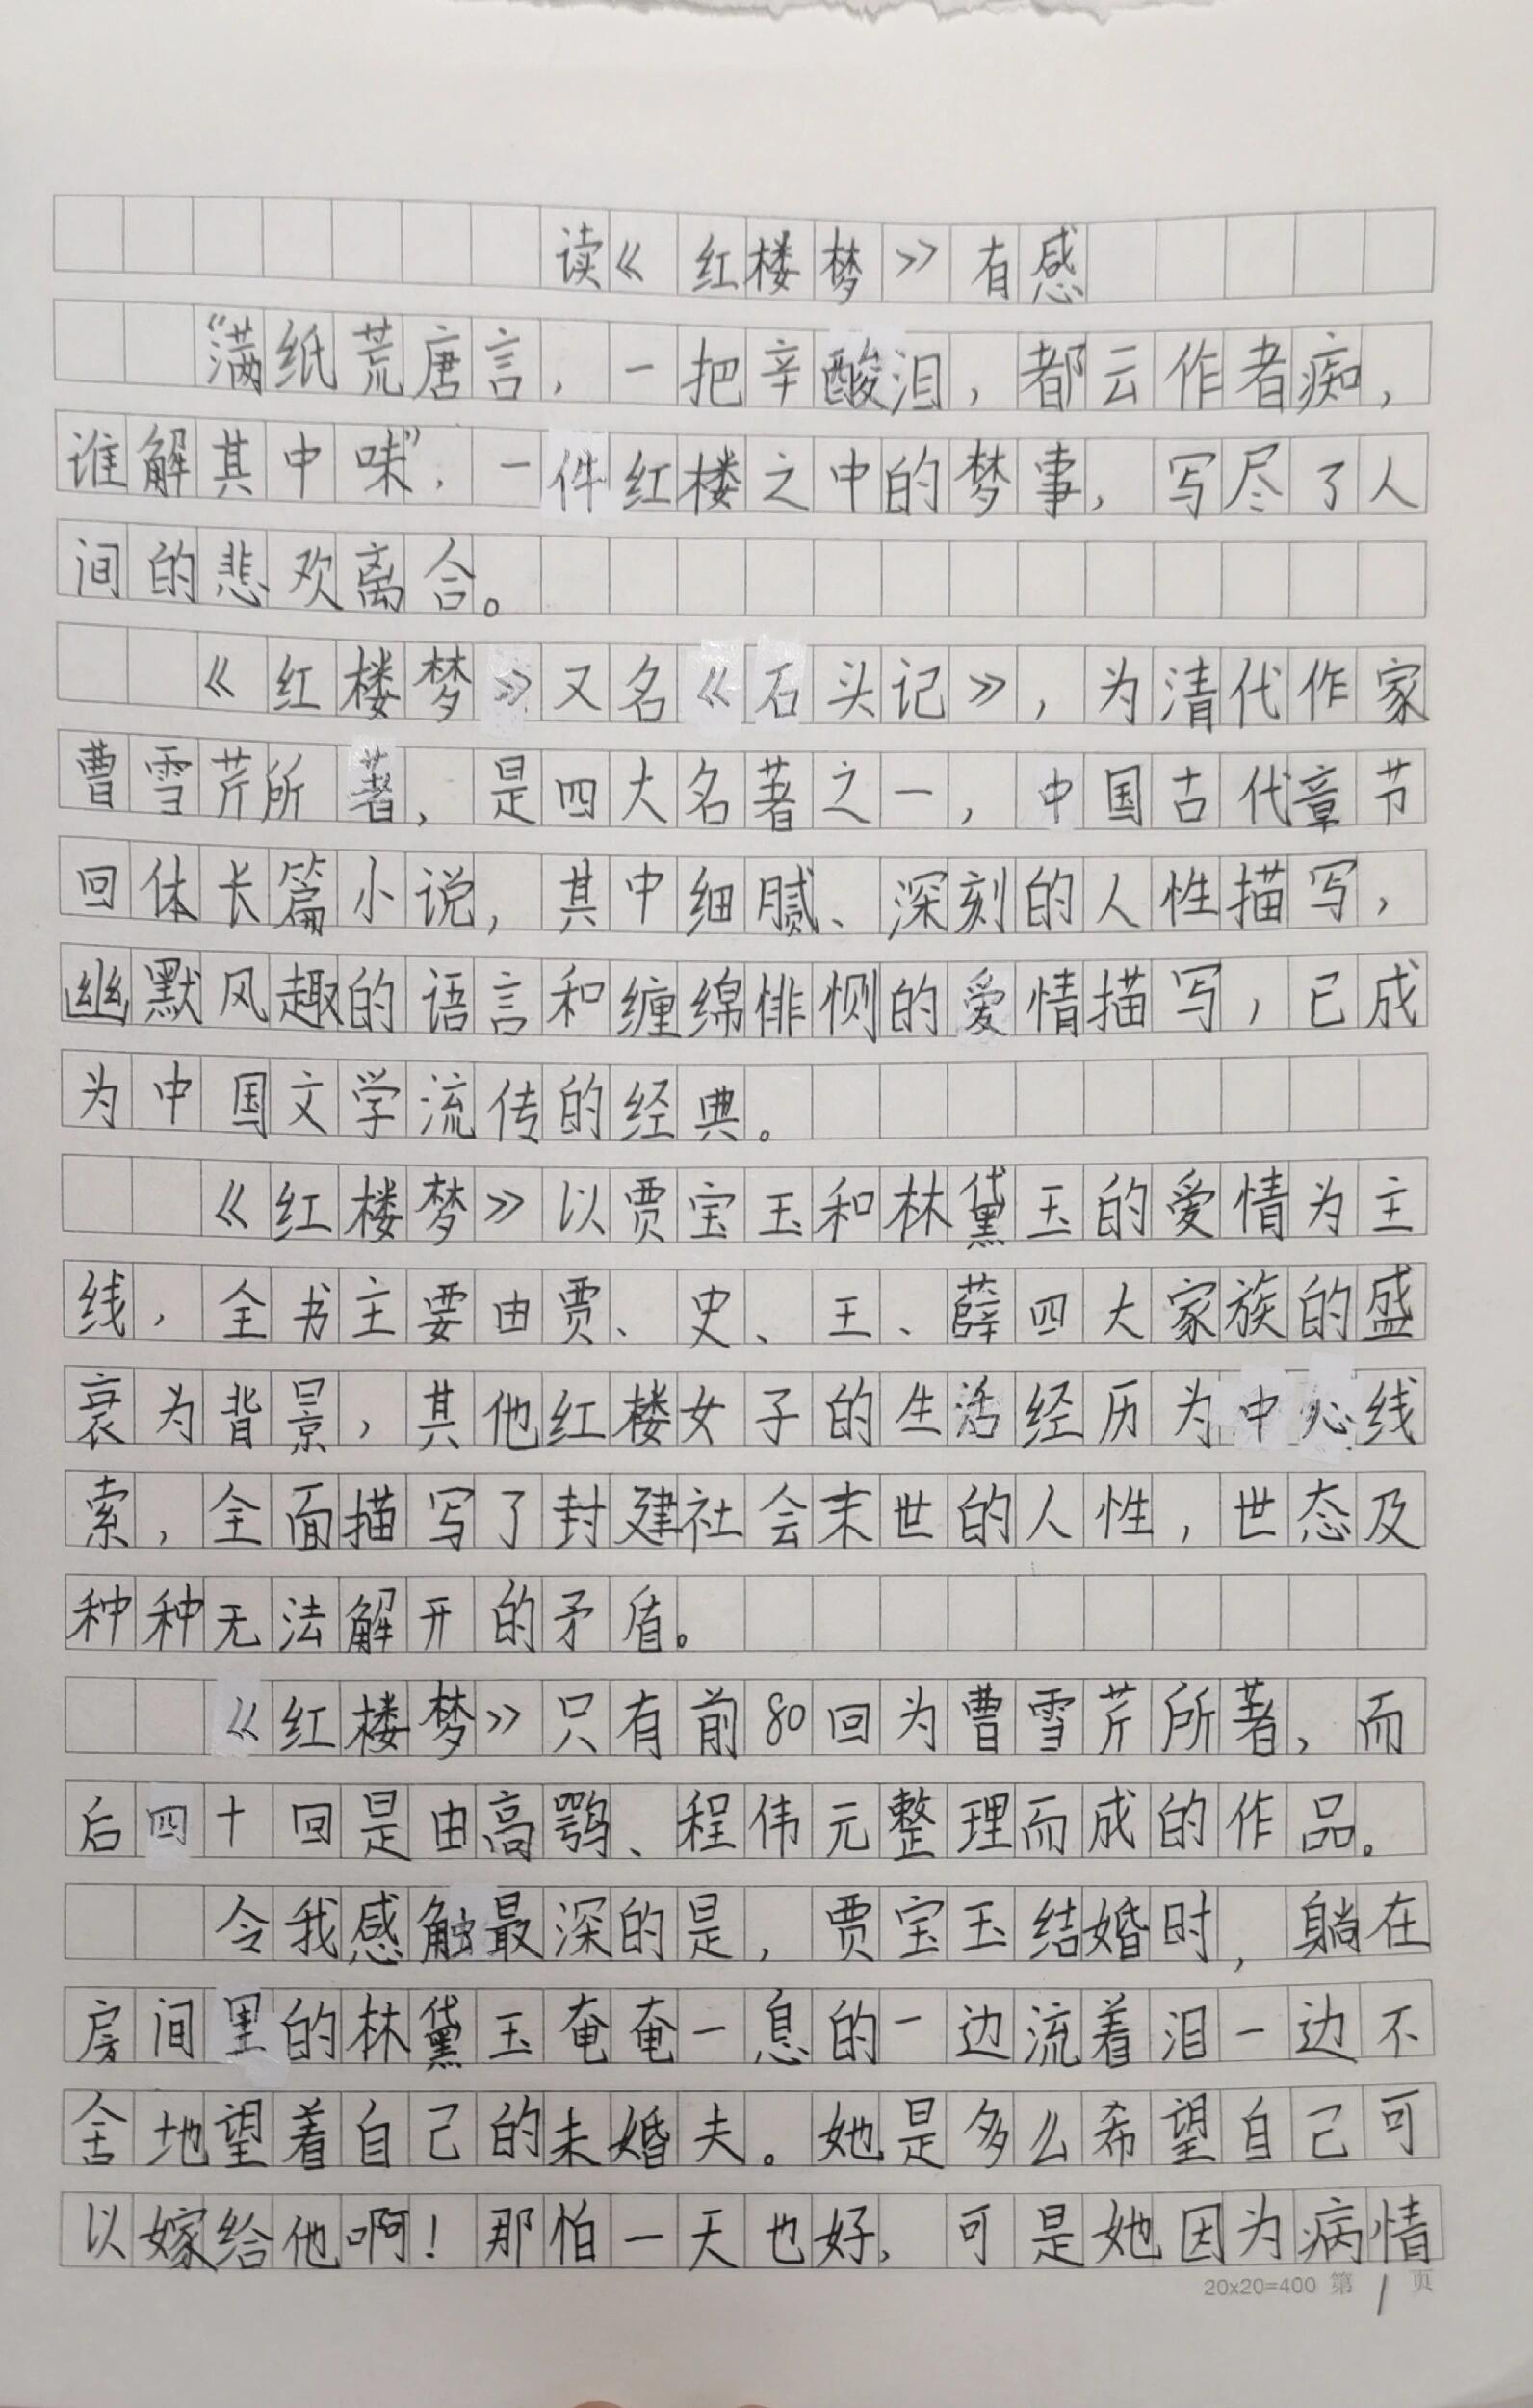 读《红楼梦》有感
“满纸荒唐言，一把辛酸泪，都云作者痴，
谁解其中味”，一件红楼之中的梦事，写尽了人
间的悲欢离合。
《红楼梦》又名《石头记》，为清代作家
曹雪芹所著，是四大名著之一，中国古代章节
回体长篇小说，其中细腻、深刻的人性描写，
幽默风趣的语言和缠绵悱恻的爱情描写，已成
为中国文学流传的经典。
《红楼梦》以贾宝玉和林黛玉的爱情为主
线，全书主要由贾、史、王、薛四大家族的盛
衰为背景，其他红楼女子的生活经历为中心线
索，全面描写了封建社会末世的人性，世态及
种种无法解开的矛盾。
《红楼梦》只有前80回为曹雪芹所著，而
后四十回是由高鹗、程伟元整理而成的作品。
令我感触最深的是，贾宝玉结婚时，躺在
房间里的林黛玉奄奄一息的一边流着泪一边不
舍地望着自己的未婚夫。她是多么希望自己可
以嫁给他啊！那怕一天也好，可是她因为病情
20x20=400 第 1 页